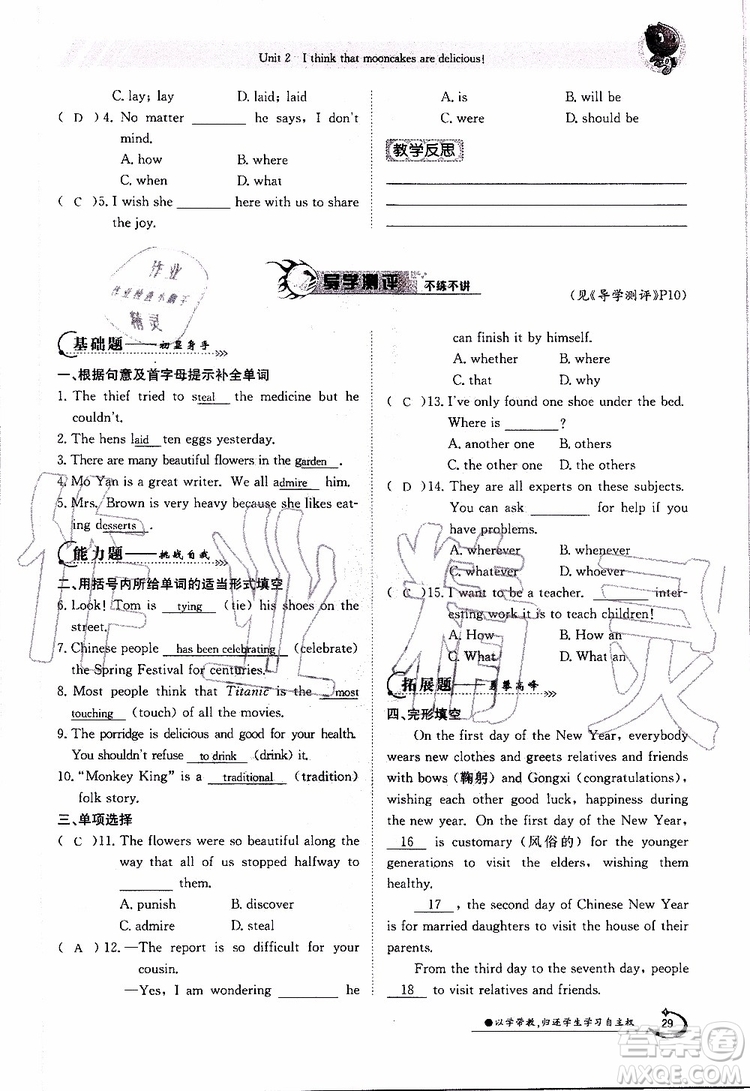 Unit 2 I think that mooncakes are delicious!
C. lay; lay D. laid; laid
( D )4. No matter ______ he says, I don't
mind.
A. how B. where
C. when D. what
( C )5. I wish she ______ here with us to share
the joy.
A. is B. will be
C. were D. should be
教学反思
作业
作业检查小助手
精灵
导学测评 不练不讲
(见《导学测评》P10)
基础题——初显身手
一、根据句意及首字母提示补全单词
1. The thief tried to steal the medicine but he
couldn't.
2. The hens laid ten eggs yesterday.
3. There are many beautiful flowers in the garden .
4. Mo Yan is a great writer. We all admire him.
5. Mrs. Brown is very heavy because she likes eat-
ing desserts .
能力题——挑战自我
二、用括号内所给单词的适当形式填空
6. Look! Tom is tying (tie) his shoes on the
street.
7. Chinese people has been celebrating (celebrate)
the Spring Festival for centuries.
8. Most people think that Titanic is the most
touching (touch) of all the movies.
9. The porridge is delicious and good for your health.
You shouldn't refuse to drink (drink) it.
10. "Monkey King" is a traditional (tradition)
folk story.
三、单项选择
( C )11. The flowers were so beautiful along the
way that all of us stopped halfway to
______ them.
A. punish B. discover
C. admire D. steal
( A )12. —The report is so difficult for your
cousin.
—Yes, I am wondering ______ he
can finish it by himself.
A. whether B. whether
C. that D. why
( C )13. I've only found one shoe under the bed.
Where is ______?
A. another one B. others
C. the other one D. the others
( D )14. They are all experts on these subjects.
You can ask ______ for help if you
have problems.
A. wherever B. whenever
C. whatever D. whoever
( C )15. I want to be a teacher. ______ inter-
esting work it is to teach children!
A. How B. How an
C. What D. What an
拓展题——勇攀高峰
四、完形填空
On the first day of the New Year, everybody
wears new clothes and greets relatives and friends
with bows (鞠躬) and Gongxi (congratulations),
wishing each other good luck, happiness during the
new year. On the first day of the New Year,
16 is customary (风俗的) for the younger
generations to visit the elders, wishing them
healthy.
17 , the second day of Chinese New Year
is for married daughters to visit the house of their
parents.
From the third day to the seventh day, people
18 to visit relatives and friends.
●以学带教,归还学生学习自主权 29
作业精灵
答案圈
MXQE.COM